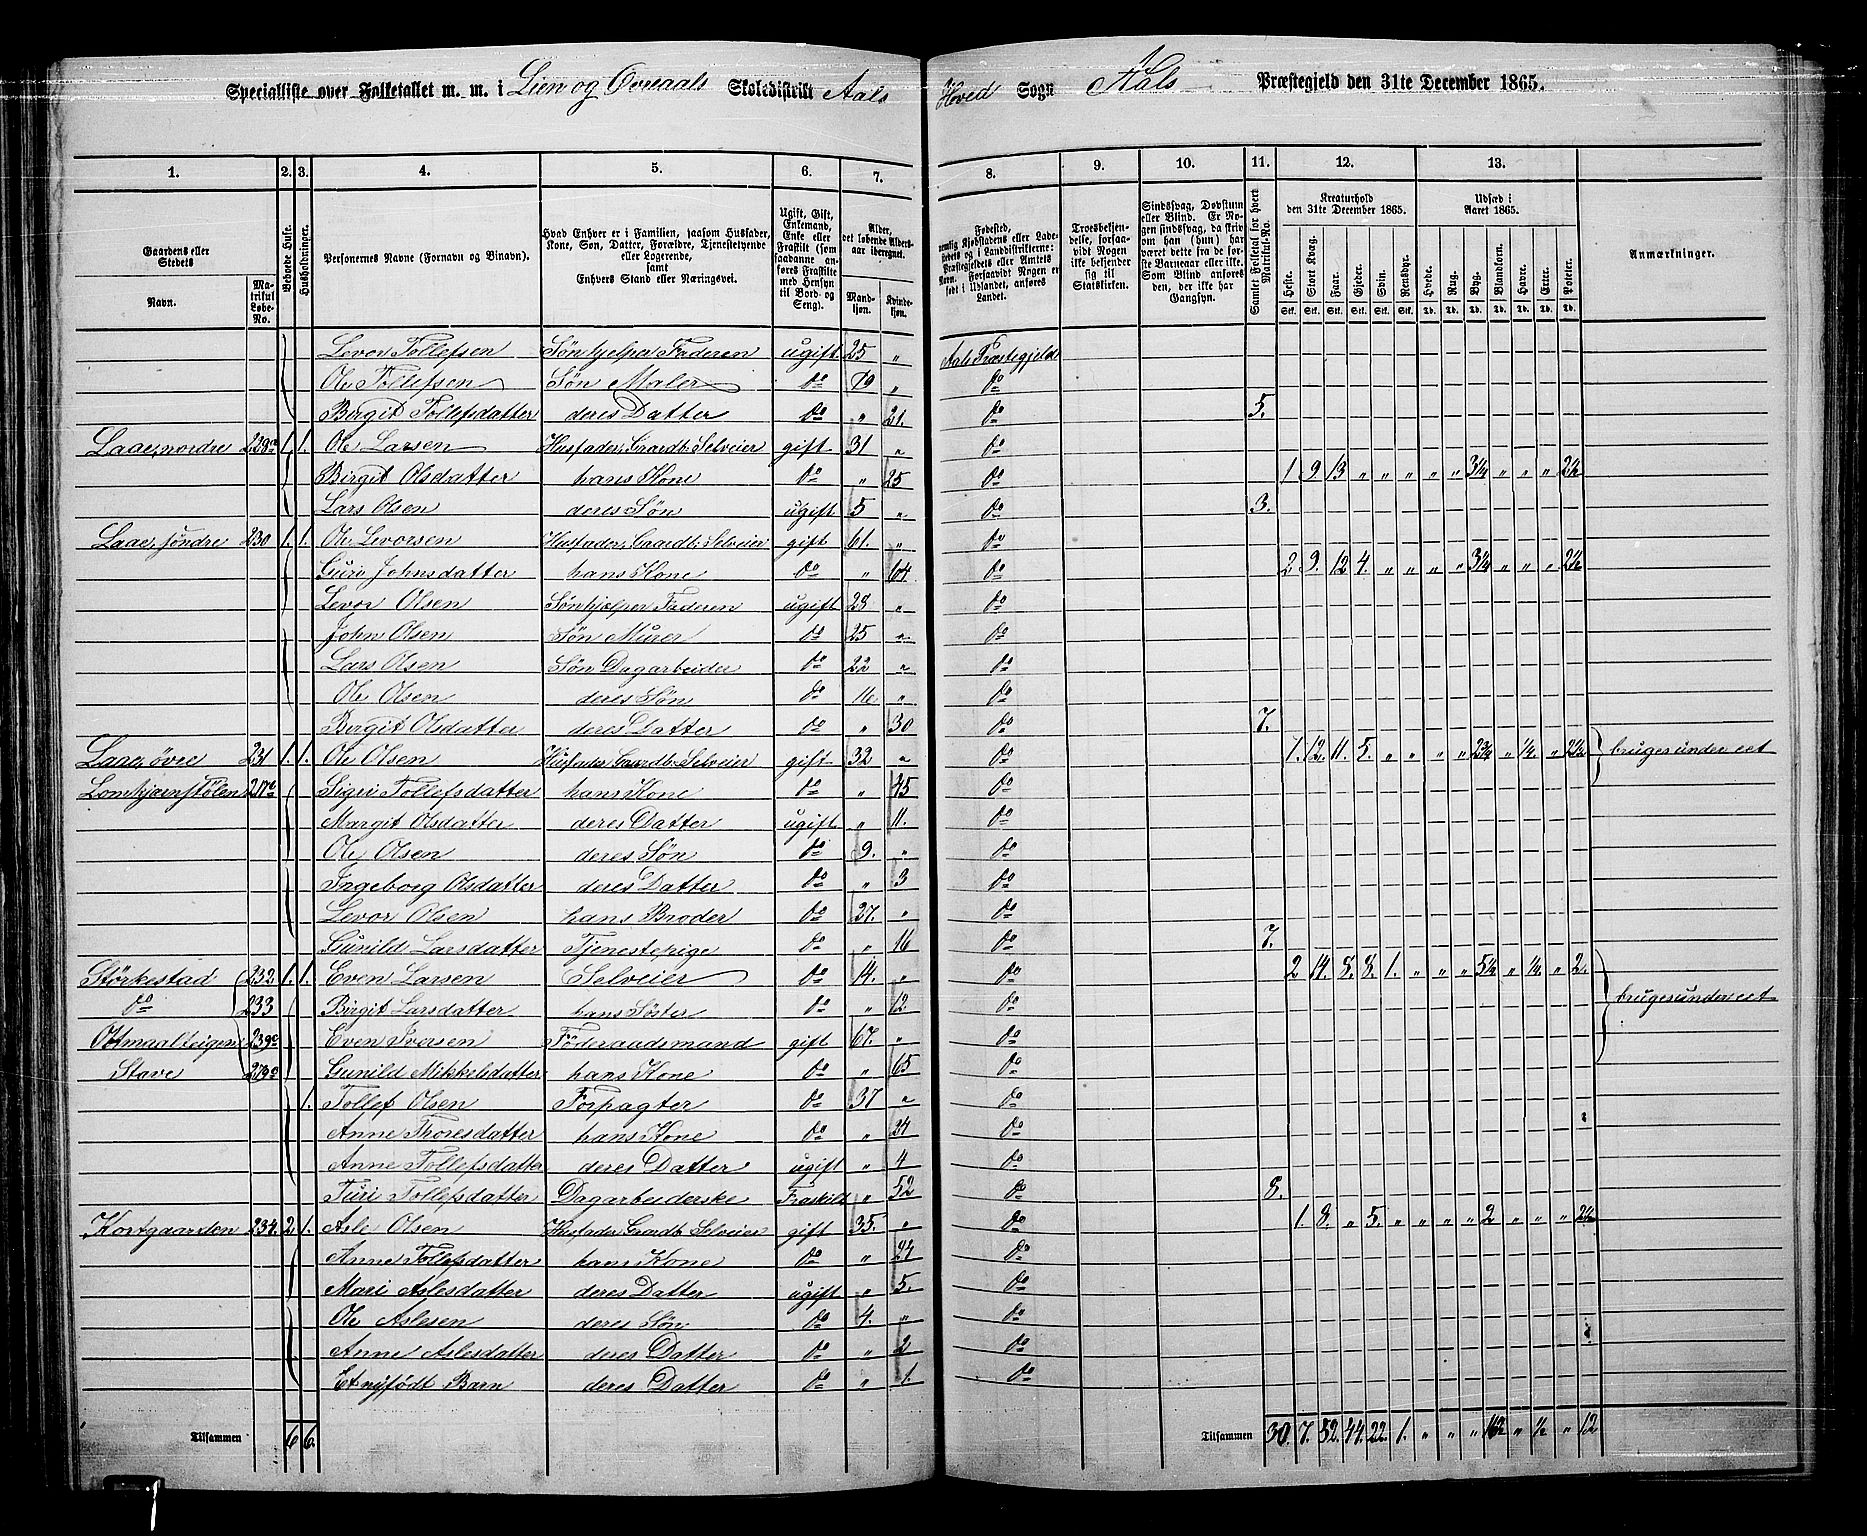 Specialliste over Folketallet m. m. i Lien og Øvreaals Skoledistrikt Aals Hoved Sogn Aals Præstegjeld den 31te December 1865.
1. 2. 3. 4. 5. 6. 7. 8. 9. 10. 11. 12. 13.
Gaardens eller Stedets
Navn.
Matrikul Løbe-No.
Beboede Huse.
Husholdninger.
Personernes Navne (Fornavn og Binavn).
Hvad Enhver er i Familien, saasom Husfader, Kone, Søn, Datter, Forældre, Tjenestetyende eller Logerende, samt Enhvers Stand eller Næringsvei.
Ugift, Gift, Enkemand, Enke eller Fraskilt (som saadanne anføres Fraskilte med Hensyn til Bord og Seng).
Alder, det løbende Aldersaar iberegnet.
Mandkjøn.
Kvindekjøn.
Fødested, nemlig Kjøbstadens eller Ladestedets og i Landdistrikterne: Præstegjeldets eller Amtets Navn. Forsaavidt Nogen er født i Udlandet, anføres Landet.
Troesbekjendelse, forsaavidt Nogen ikke bekjender sig til Statskirken.
Sindssvag, Døvstum eller Blind. Er Nogen sindssvag, da skriv om han (hun) har været dette fra de første Barneaar eller ikke. Som Blind anføres den, der ikke har Gangsyn.
Samlet Folketal for hvert Matrikul-No.
Kreaturhold den 31te December 1865.
Udsæd i Aaret 1865.
Heste. Stort Kvæg. Faar. Gjeder. Svin. Rensdyr. Hvede. Rug. Byg. Blandkorn. Havre. Erter. Poteter.
Stk. Stk. Stk. Stk. Stk. Stk. Td. Td. Td. Td. Td. Td. Td.
Anmærkninger.
Levor Tollefsen Søn hjelper Faderen ugift 25 „ Aals Præstegjeld
Ole Tollefsen Søn Maler do 19 „ do
Birgit Tollefsdatter deres Datter do „ 21. do 5.
Laae, nordre 229a 1. 1. Ole Larsen Husfader, Gaardb. Selveier gift 31 „ do
Birgit Olsdatter hans Kone do „ 25 do 1. 9. 13 „ „ „ „ „ 3¼ „ „ „ 2½
Lars Olsen deres Søn ugift 5 „ do 3.
Laae, søndre 230 1. 1. Ole Levorsen Husfader, Gaardb. Selveier gift 61. „ do
Guri Johnsdatter hans Kone do „ 64. do 2 9. 12 4. „ „ „ „ 3¼ „ „ „ 2½
Levor Olsen Søn hjelper Faderen ugift 28 „ do
John Olsen Søn Murer do 25 „ do
Lars Olsen Søn Dagarbeider do 22 „ do
Ole Olsen deres Søn do 16. „ do
Birgit Olsdatter deres Datter do „ 30 do 7.
Laae, øvre 231 1. 1. Ole Olsen Husfader Gaardb. Selveier gift 32 „ do 1. 12. 11. 5. „ „ „ „ 2¾ „ ¼. „ 2½ bruges under eet
Lomtjernstølen Sigri Tollefsdatter hans Kone do „ 45 do
Margit Olsdatter deres Datter ugift „ 11. do
Ole Olsen deres Søn do 9. „ do
Ingeborg Olsdatter deres Datter do „ 3 do
Levor Olsen hans Broder do 27. „ do
Gunild Larsdatter Tjenestepige do „ 16 do 7.
Størkestad 232 1. 1. Even Larsen Selveier do 14. „ do 2 14. 8. 8. 1. „ „ „ 5¼ „ ¼ „ 2.
do 233 Birgit Larsdatter hans Søster do „ 12. do bruges under eet
Ottmaalteigen 239c Even Iversen Føderaadsmand gift 67. „ do
Stave Gunild Mikkelsdatter hans Kone do „ 65 do
1. Tollef Olsen Forpagter do 37 „ do
Anne Thoresdatter hans Kone do „ 24 do
Anne Tollefsdatter deres Datter ugift „ 4 do
Turi Tollefsdatter Dagarbeiderske Fraskild „ 52 do 8.
Kortgaarden 234. 2. 1. Asle Olsen Husfader Gaardb. Selveier gift 35. „ do 1. 8. „ 5. „ „ „ „ 2 „ „ „ 2½
Anne Tollefsdatter hans Kone do „ 24 do
Mari Aslesdatter deres Datter ugift „ 5 do
Ole Aslesen deres Søn do 4. „ do
Anne Aslesdatter deres Datter do „ 2 do
Et nyfødt Barn deres Datter do „ 1. do
Tilsammen 6 6. Tilsammen 30. 7. 52. 44. 22. 1. „ „ „ „ ½ „ 12